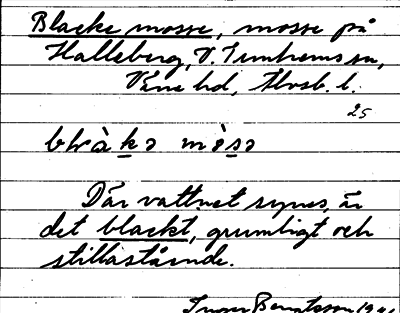 Blacke mosse, mosse på
Halleberg, V. Tunhems sn,
Väne hd, Älvsb. l.
25
blràkə mòsə
Där vattnet synes, är
det blackt, grumligt och
stillastående.
Bengtsson